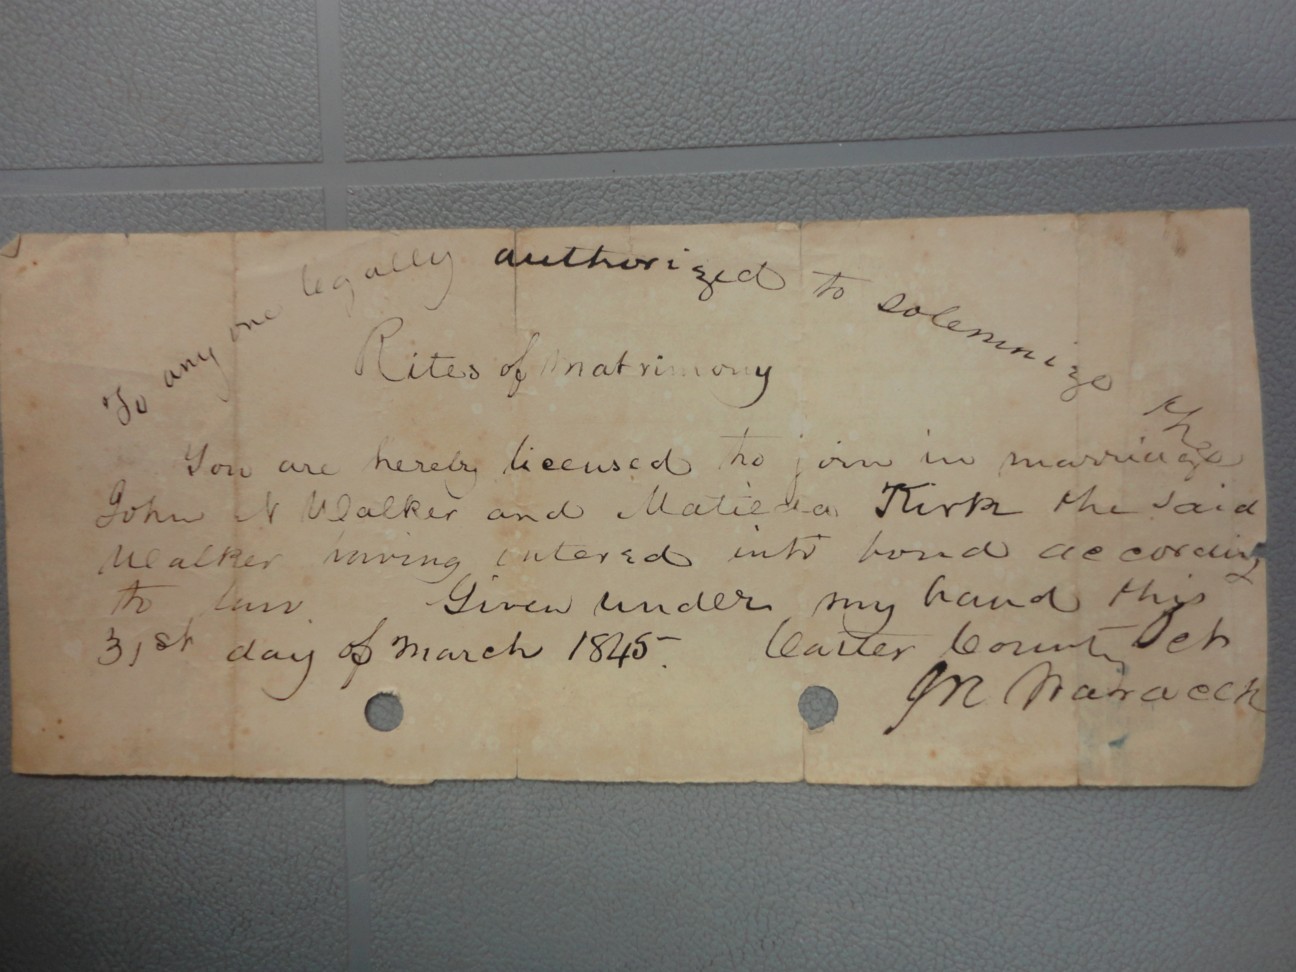 To any one legally authorized to solemnize the
Rites of matrimony
You are hereby licensed to join in marriage
John N Walker and Matilda Kirk the said
Walker having entered into bond according
to law Given under my hand this
31st day of March 1845. Carter County Sct